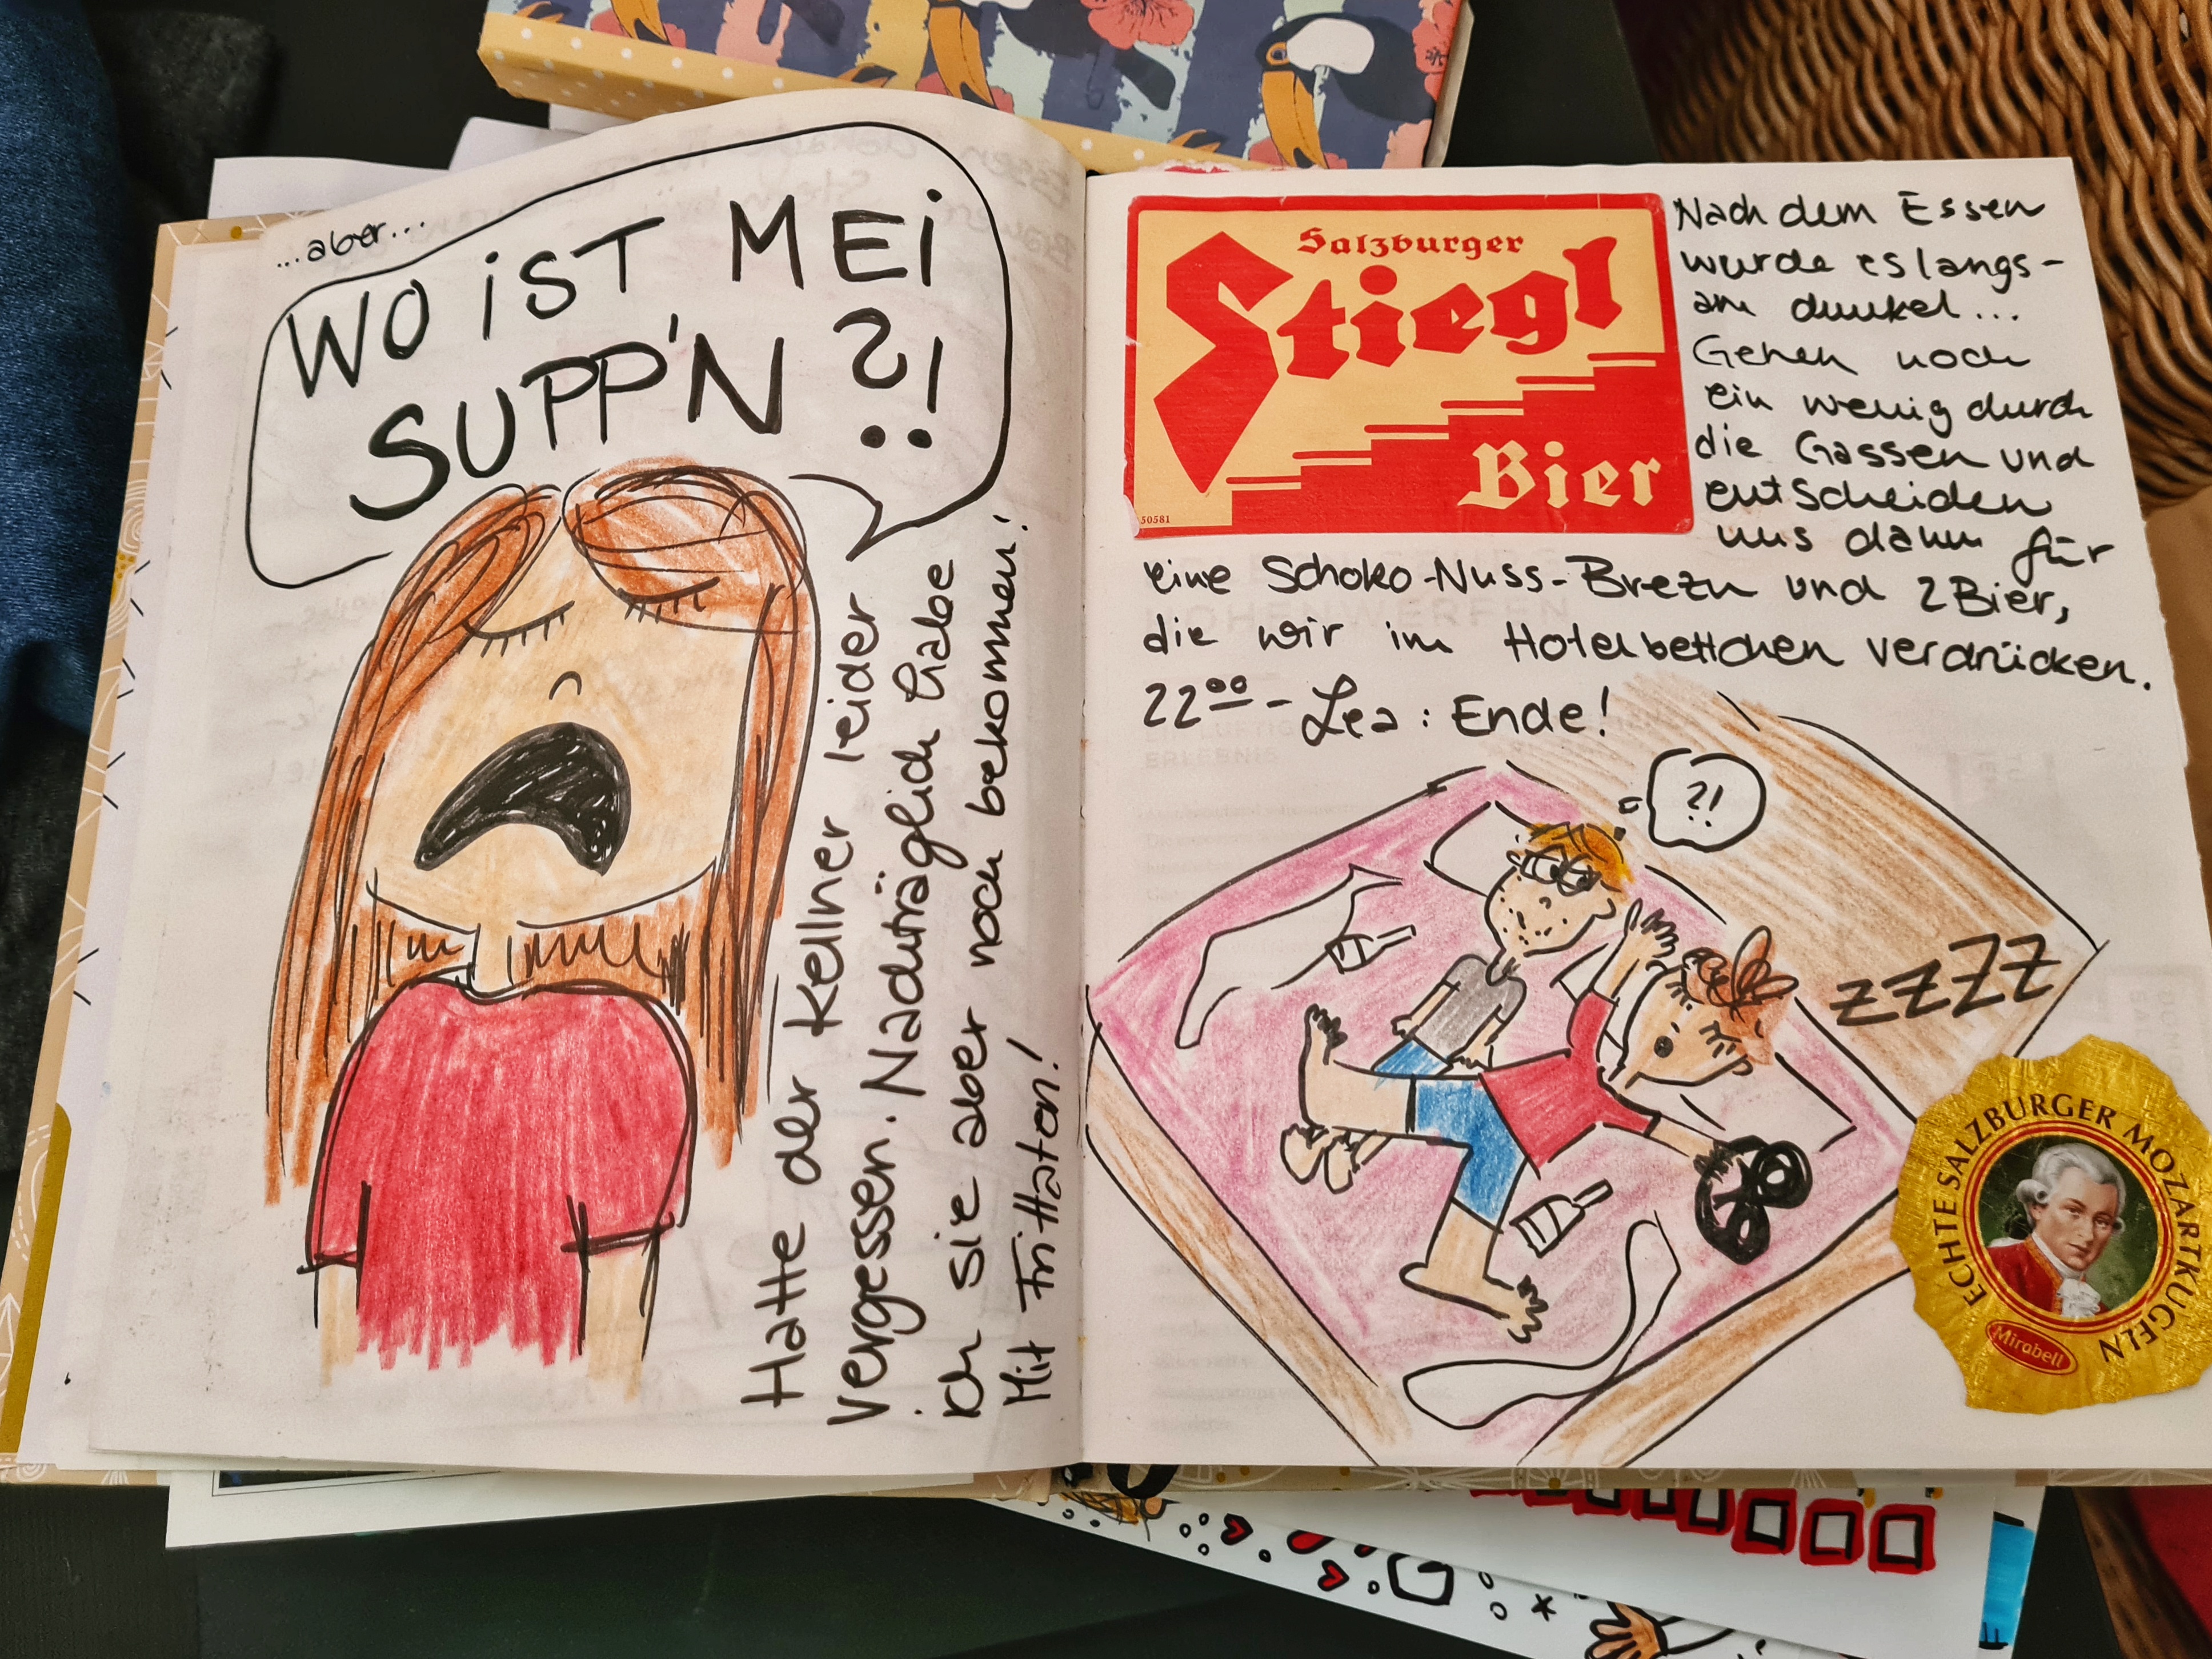 ...aber...
WO iST MEi
SUPP'N ?!
Hatte der Kellner leider
vergessen. Nachträglich habe
ich sie aber noch bekommen!
Mit Frittaten!
Salzburger
Stiegl
Bier
50581
Nach dem Essen
wurde es langs-
am dunkel...
Gehen noch
ein wenig durch
die Gassen und
entscheiden
uns dann für
eine Schoko-Nuss-Brezn und 2 Bier,
die wir im Hotelbettchen verdrücken.
22⁰⁰ - Lea: Ende!
?!
zzZZ
ECHTE SALZBURGER MOZARTKUGELN
Mirabell